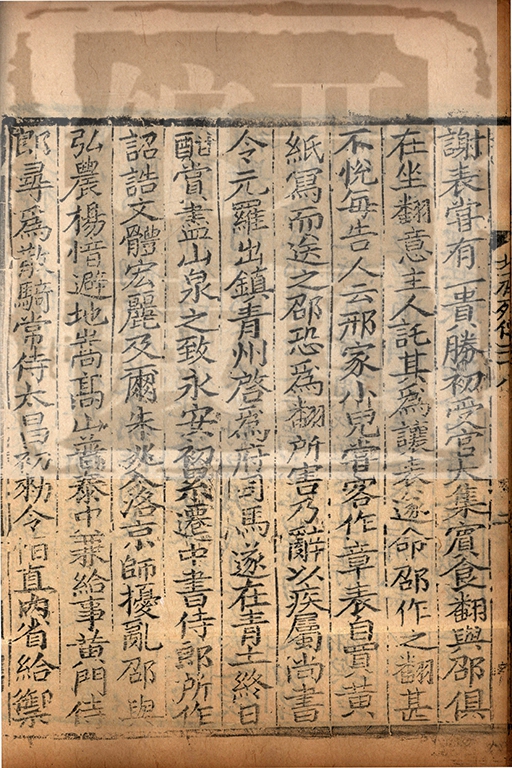 謝表嘗有一貴勝初受官大集賓食翻與邵俱
在坐翻意主人託其為讓表遂命邵作之翻甚
不悅每告人云邢家小兒嘗客作章表自買黃
紙寫而送之邵恐為翻所害乃辭以疾屬尚書
令元羅出鎮青州啓為府司馬遂在青土終日
酣賞盡山泉之致永安初累遷中書侍郎所作
詔誥文體宏麗及爾朱兆入洛京師擾亂邵與
弘農楊愔避地嵩高山普泰中兼給事黃門侍
郎尋為散騎常侍太昌初勑令恒直內省給禦